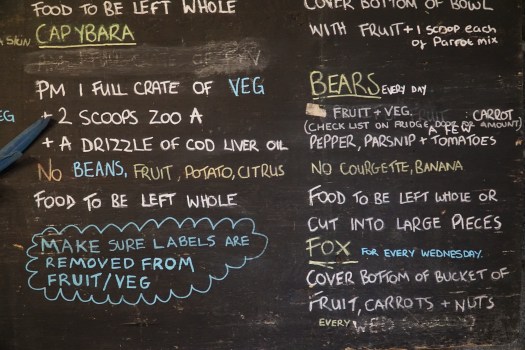 FOOD TO BE LEFT WHOLE
A SKIN
CAPYBARA
PM 1 FULL CRATE OF VEG
EG
+ 2 SCOOPS ZOO A
+ A DRIZZLE OF COD LIVER OIL
NO BEANS, FRUIT, POTATO, CITRUS
FOOD TO BE LEFT WHOLE
MAKE SURE LABELS ARE
REMOVED FROM
FRUIT/VEG
COVER BOTTOM OF BOWL
WITH FRUIT + 1 SCOOP each
of Parrot mix
BEARS EVERY DAY
FRUIT + VEG. CARROT
(CHECK LIST ON FRIDGE DOOR FOR AMOUNT)
A FEW
PEPPER, PARSNIP + TOMATOES
NO COURGETTE, BANANA
FOOD TO BE LEFT WHOLE OR
CUT INTO LARGE PIECES
FOX FOR EVERY WEDNESDAY.
COVER BOTTOM OF BUCKET OF
FRUIT, CARROTS + NUTS
EVERY WED